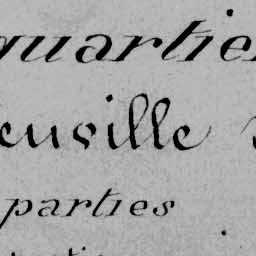 quartier
euville
parties